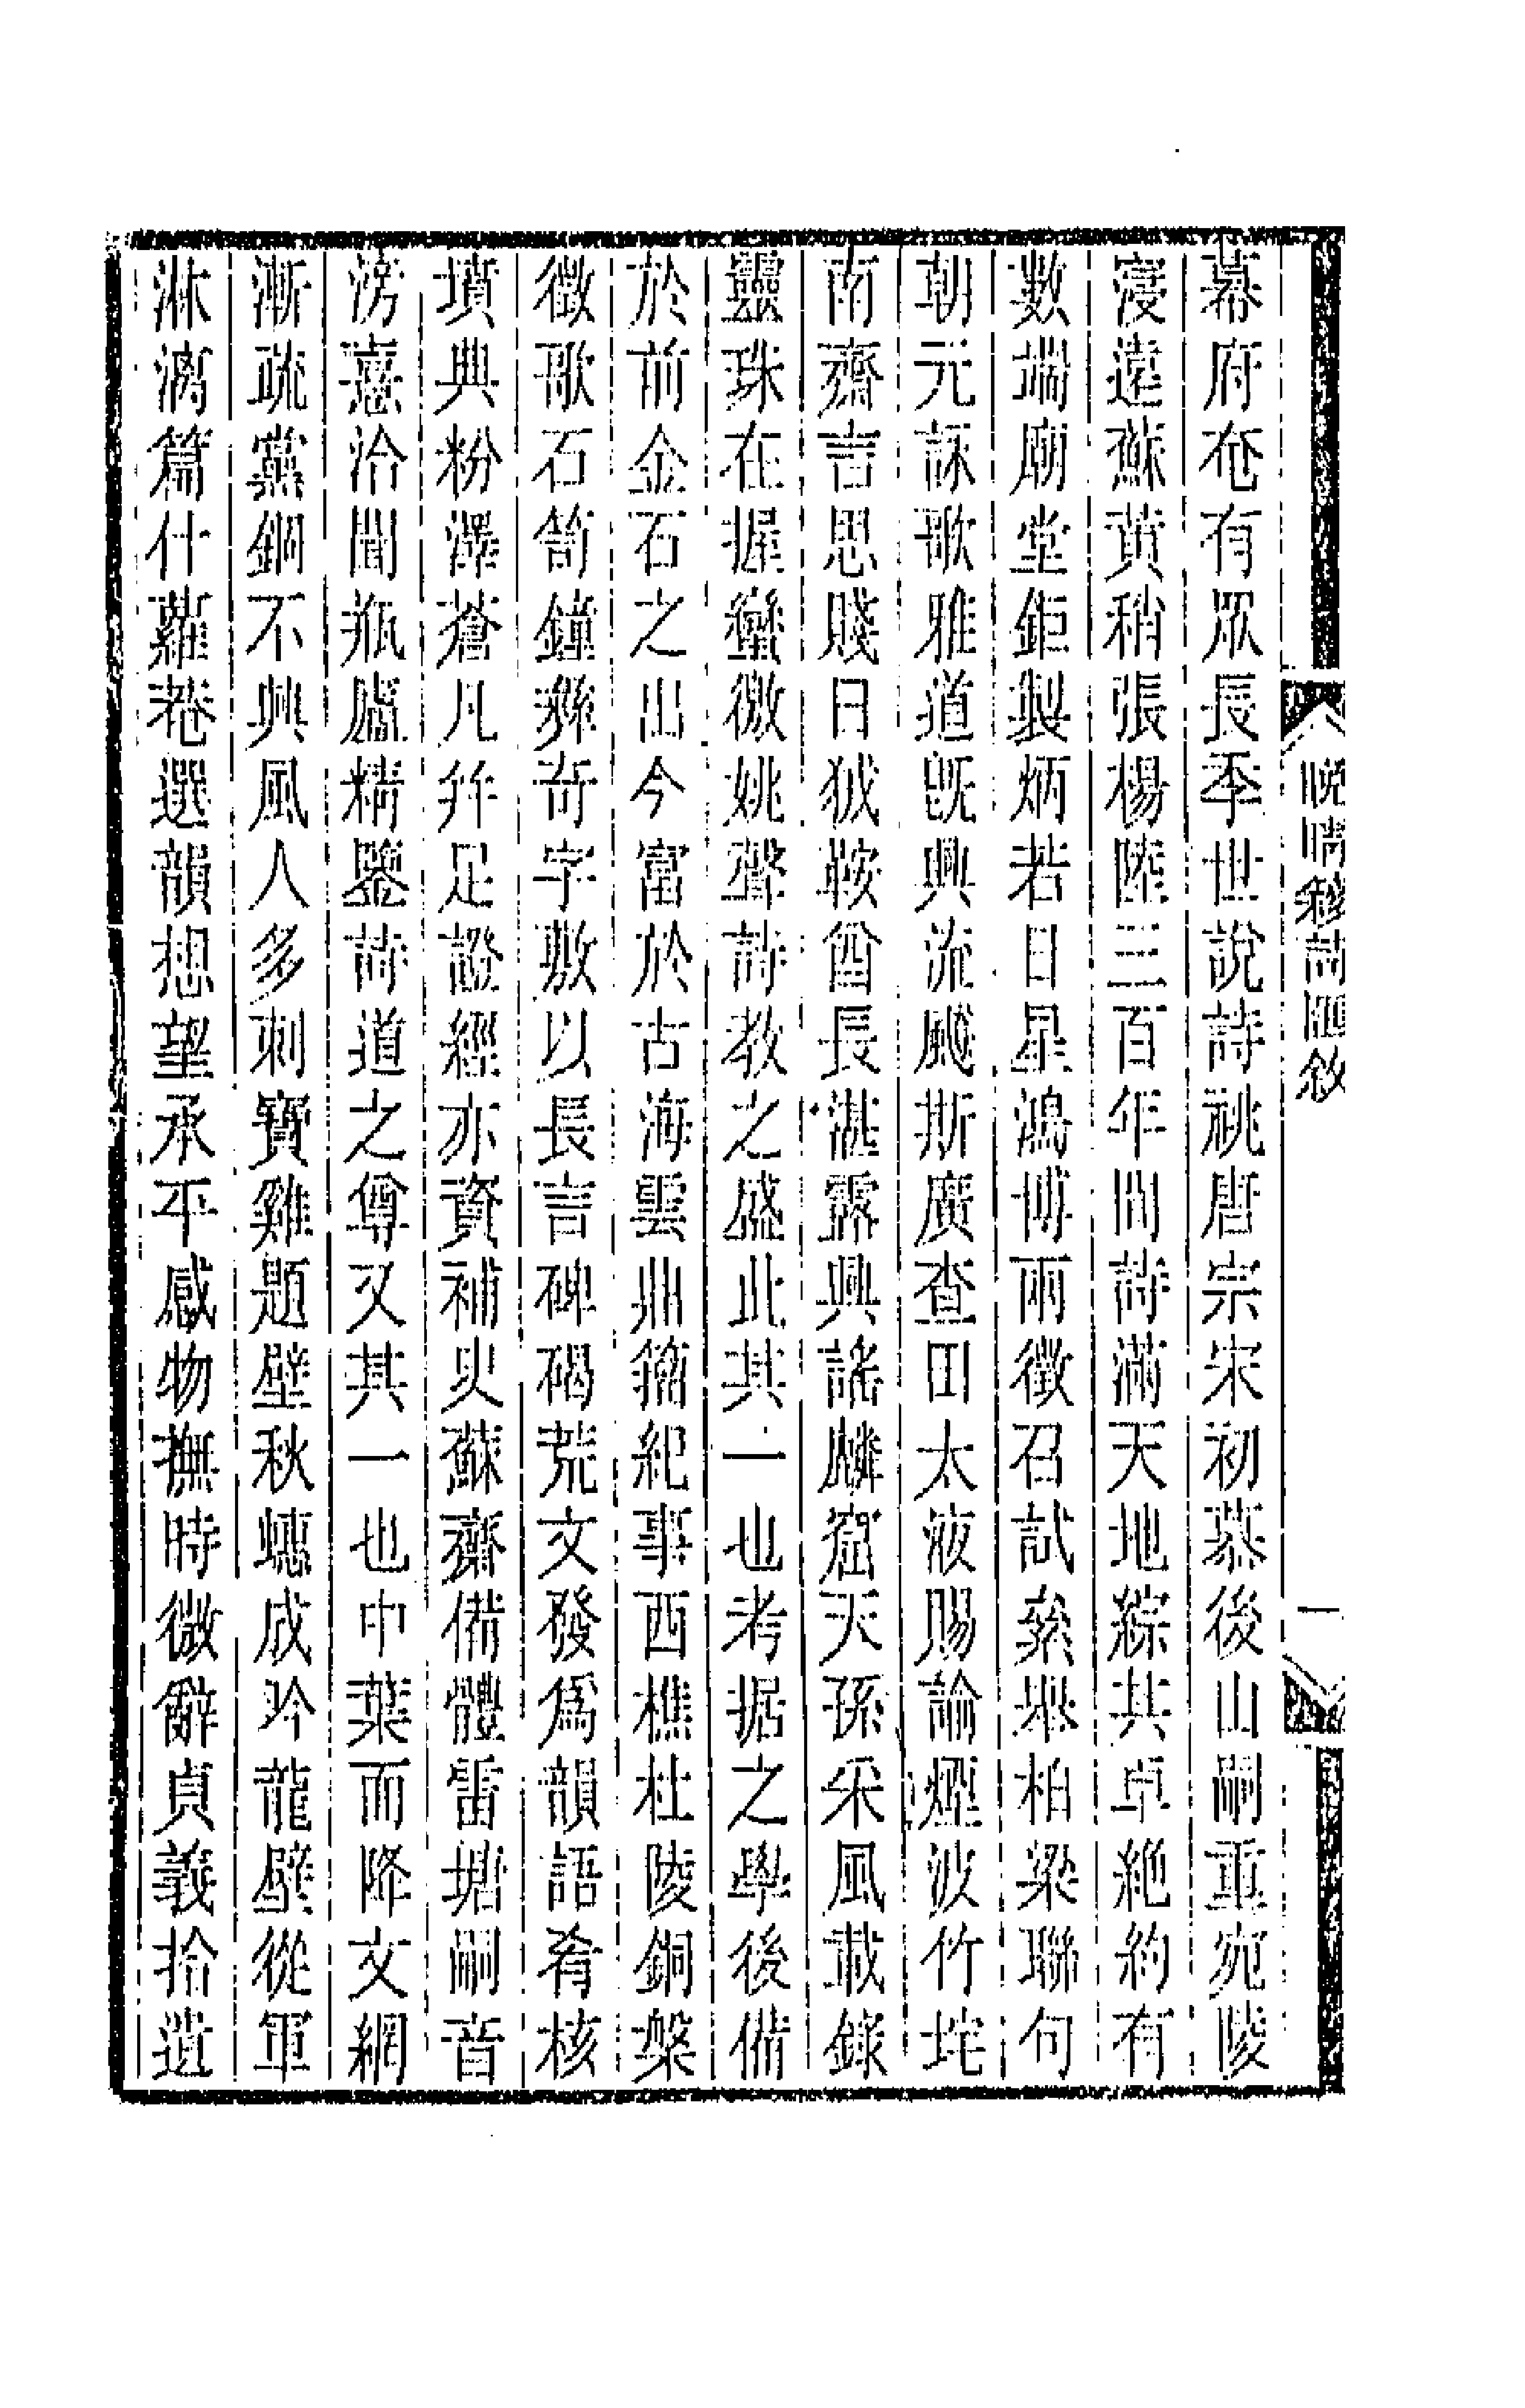 晚晴簃詩匯敘
一
幕府奄有眾長季世說詩祧唐宗宋初慕後山嗣重宛陵
寖遠蘇黃稍張楊陸三百年間詩滿天地綜其卓絕約有
數耑廟堂鉅製炳若日星鴻博兩徵召試屢舉柏梁聯句
朝元詠歌雅道旣興流颷斯廣查田太液賜論煙波竹垞
南齋言思賤日狘鞍酋長湛露興謠麟窟天孫采風載錄
靈珠在握蠻徼姚聲詩教之盛此其一也考据之學後備
於前金石之出今富於古海雲鼎籀紀事西樵杜陵銅槃
徵歌石笥鐘彝奇字敷以長言碑碣荒文發爲韻語肴核
墳典粉澤蒼凡幷足證經亦資補史蘇齋備體雷塘嗣音
滂憙洽聞瓶廬精鑒詩道之尊又其一也中葉而降文網
漸疏黨錮不興風人多刺寶雞題壁秋蟪成吟龍壁從軍
淋漓篇什蘿菴選韻想望承平感物撫時微辭貞義拾遺